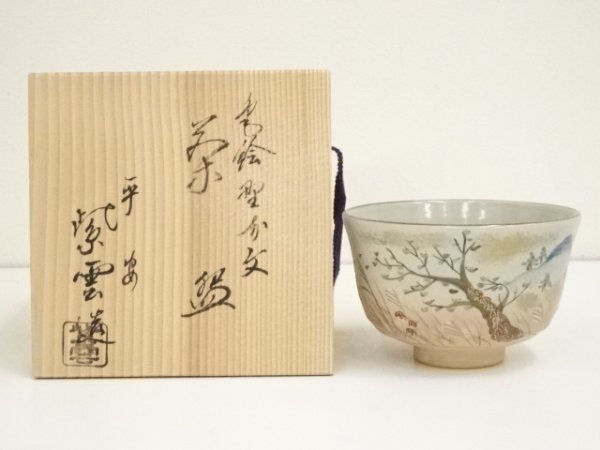 色絵野分文
茶盌
平安
紫雲造